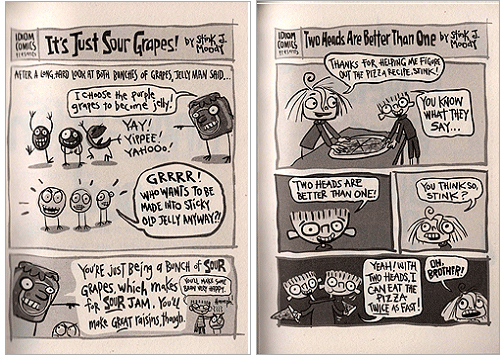 IDIOM COMICS presents
It's Just Sour Grapes!
by Stink J. Moody
AFTER A LONG, HARD LOOK AT BOTH BUNCHES OF GRAPES, JELLY MAN SAID...
I choose the purple
grapes to become jelly!
YAY!
YiPPEE!
YAHOOO!
GRRRR!
WHO WANTS TO BE
MADE INTO STICKY
OLD JELLY ANYWAY?!
YOU'RE JUST BEING A BUNCH OF SOUR
GRAPES, which makes
for SOUR JAM. YOU'll
make GREAT raisins, though.
YOU'LL MAKE SOME
BABY VERY HAPPY.
IDIOM COMICS presents
Two Heads Are Better Than One
by Stink J. Moody
THANKS FOR HELPING ME FIGURE
OUT THE PIZZA RECIPE, STINK!
YOU KNOW
WHAT THEY
SAY...
TWO HEADS ARE
BETTER THAN ONE!
YOU THINK SO,
STINK?
YEAH! WITH
TWO HEADS, I
CAN EAT THE
PIZZA
TWICE AS FAST!
OH,
BROTHER!